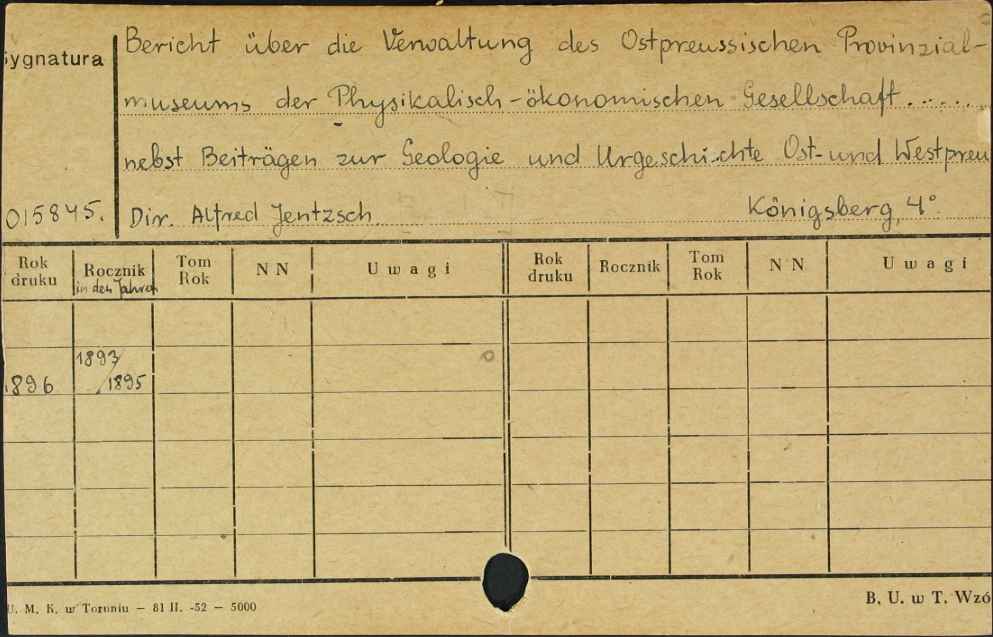 Sygnatura
Bericht über die Verwaltung des Ostpreussischen Provinzial-
museums der Physikalisch-ökonomischen Gesellschaft......
nebst Beiträgen zur Geologie und Urgeschichte Ost- und Westpreu
015845. Dir. Alfred Jentzsch Königsberg, 4°
Rok druku Rocznik in den Jahren Tom Rok NN Uwagi Rok druku Rocznik Tom Rok NN Uwagi
1896 1893/1895
U. M. K. w Toruniu — 81 II. -52 — 5000 B. U. w T. Wzó